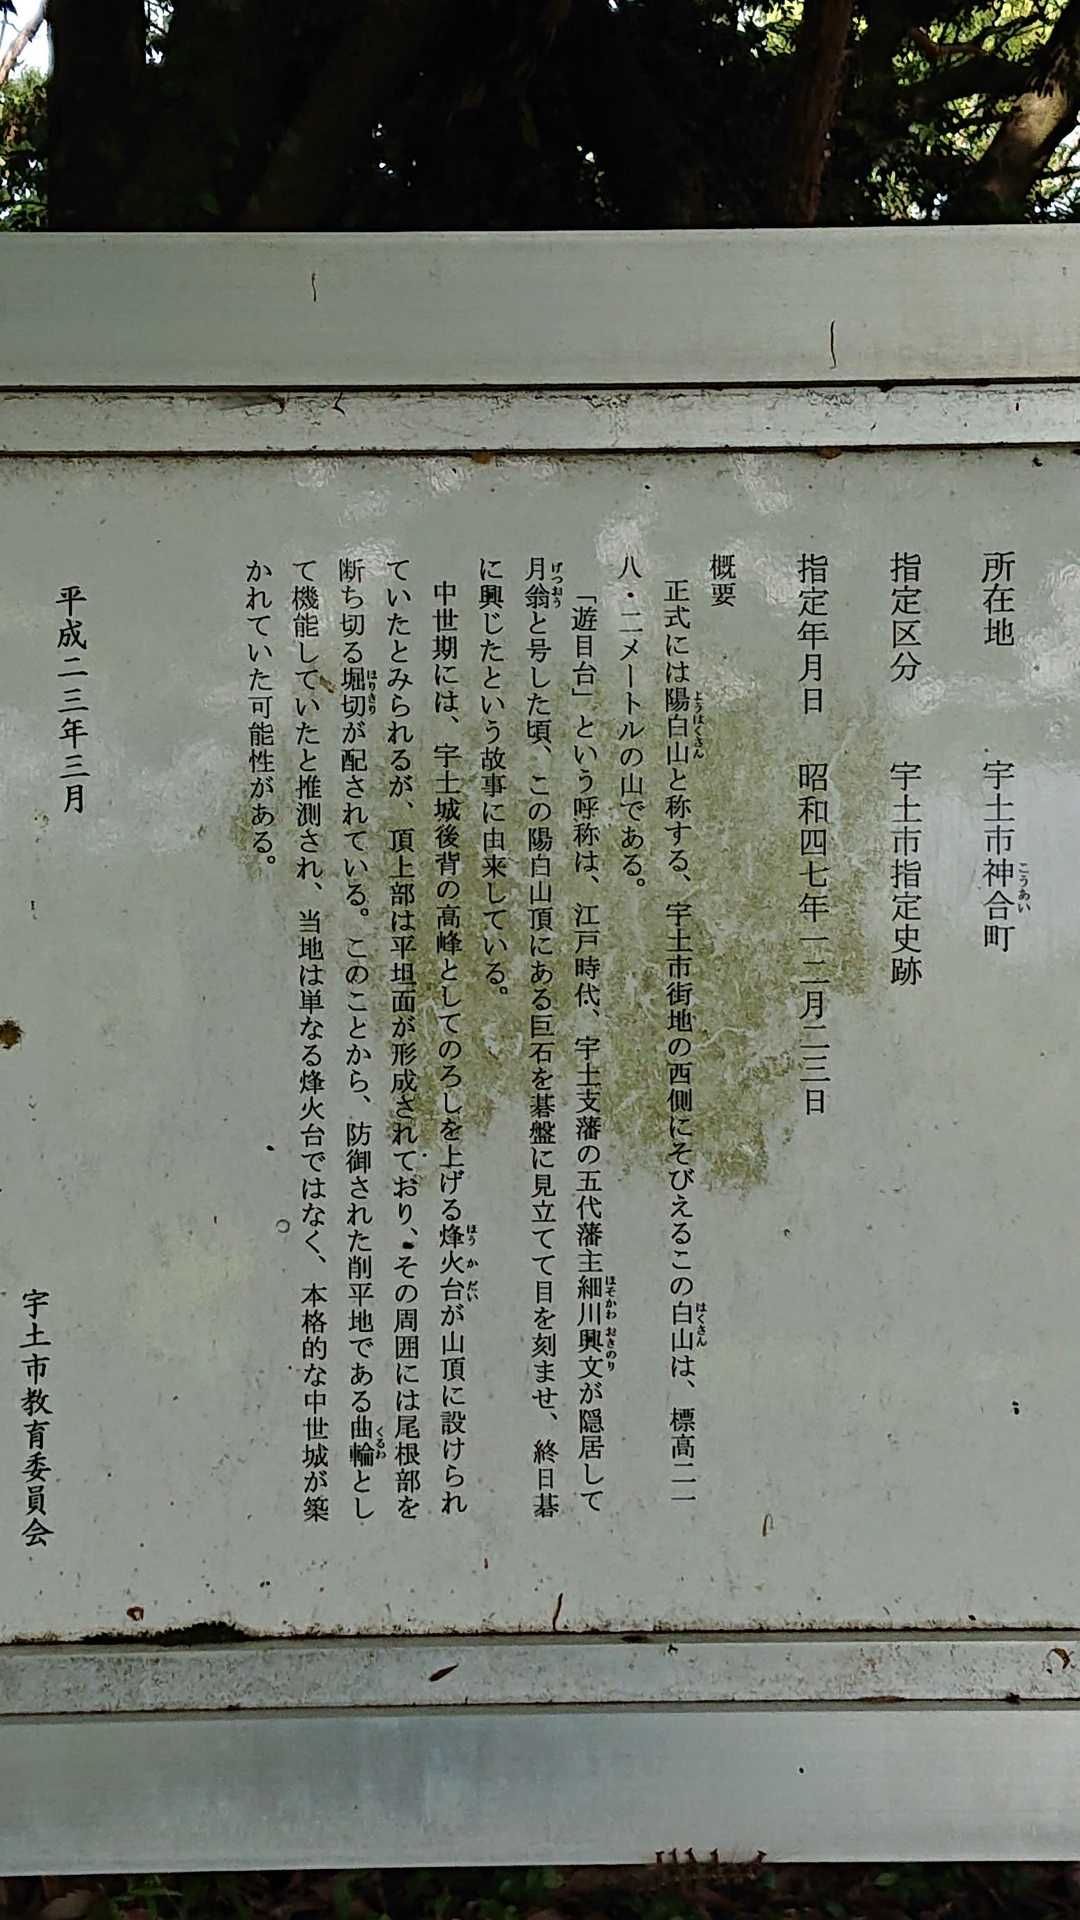 所在地　宇土市神合町
指定区分　宇土市指定史跡
指定年月日　昭和四七年一二月二三日
概要
正式には陽白山と称する、宇土市街地の西側にそびえるこの白山は、標高二一
八・二メートルの山である。
「遊目台」という呼称は、江戸時代、宇土支藩の五代藩主細川興文が隠居して
月翁と号した頃、この陽白山頂にある巨石を碁盤に見立てて目を刻ませ、終日碁
に興じたという故事に由来している。
中世期には、宇土城後背の高峰としてのろしを上げる烽火台が山頂に設けられ
ていたとみられるが、頂上部は平坦面が形成されており、その周囲には尾根部を
断ち切る堀切が配されている。このことから、防御された削平地である曲輪とし
て機能していたと推測され、当地は単なる烽火台ではなく、本格的な中世城が築
かれていた可能性がある。
平成二三年三月
宇土市教育委員会